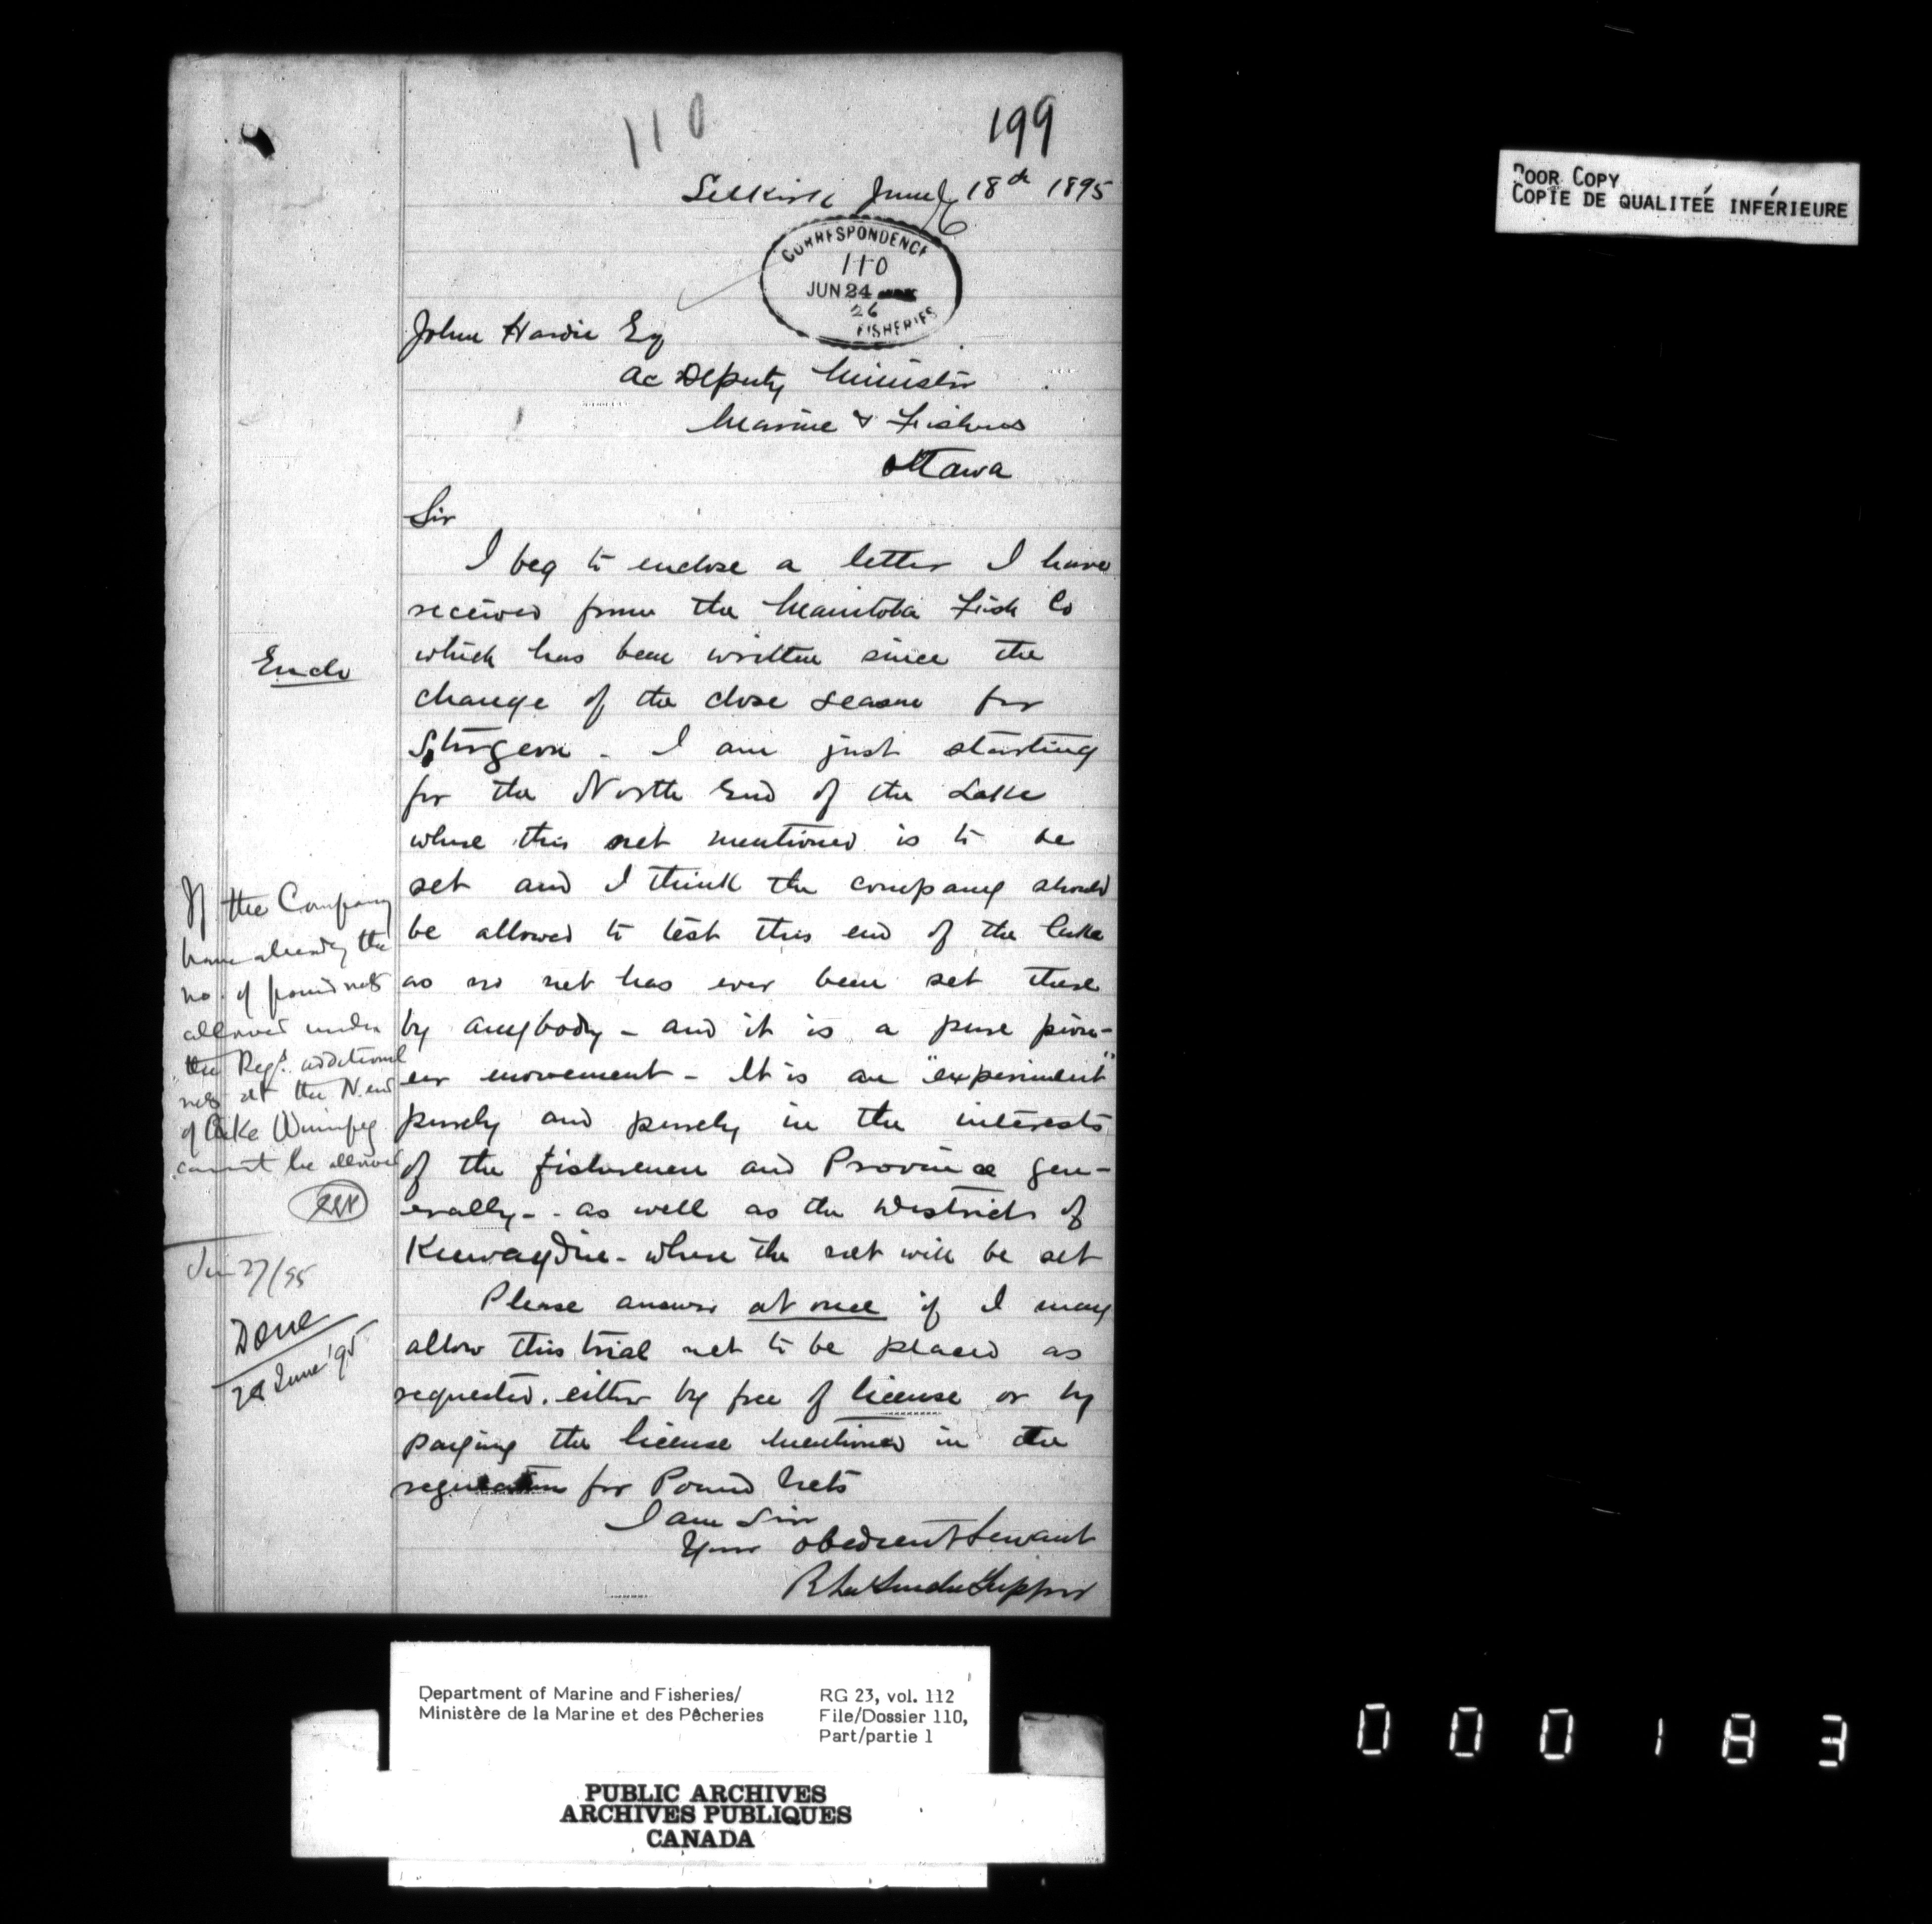 110
199
Selkirk June 18th 1895
CORRESPONDENCE
110
JUN 24
26
FISHERIES
John Hardie Esq
Ac Deputy Minister
Marine & Fisheries
Ottawa
Sir
I beg to enclose a letter I have
received from the Manitoba Fish Co
which has been written since the
change of the close season for
Sturgeon - I am just starting
for the North End of the Lake
where this net mentioned is to be
set and I think the company should
be allowed to test this end of the lake
as no net has ever been set there
by anybody - and it is a pure pion-
eer movement - It is an "experiment"
purely and purely in the interests
of the fishermen and Province gen-
erally - as well as the District of
Keewaydin - where the net will be set
Please answer at once if I may
allow this trial net to be placed as
requested. either by free of license or by
paying the license mentioned in the
regulation for Pound Nets
I am Sir
Your obedient Servant
Enclo
If the Company
have already the
no. of pound nets
allowed under
the Regs. additional
nets at the N. end
of Lake Winnipeg
cannot be allowed
Jun 27/95
Done
28 June '95
POOR COPY
COPIE DE QUALITEÉ INFÉRIEURE
Department of Marine and Fisheries/
Ministère de la Marine et des Pêcheries
RG 23, vol. 112
File/Dossier 110,
Part/partie 1
PUBLIC ARCHIVES
ARCHIVES PUBLIQUES
CANADA
000183